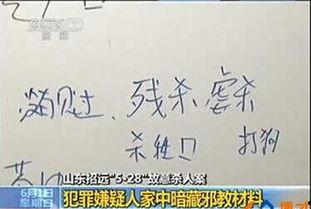 CCTV
新闻
见过、残杀 虐杀
杀牲口 打狗
山东招远“5·28”故意杀人案
6月1日
星期日
犯罪嫌疑人家中暗藏邪教材料